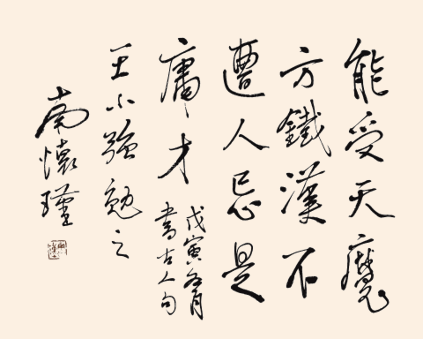 能受天魔
方鐵漢不
遭人忌是
庸才
戊寅冬月
書古人句
王小強勉之
南懷瑾